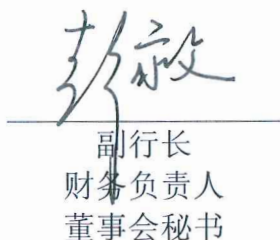 彭敏
副行长
财务负责人
董事会秘书